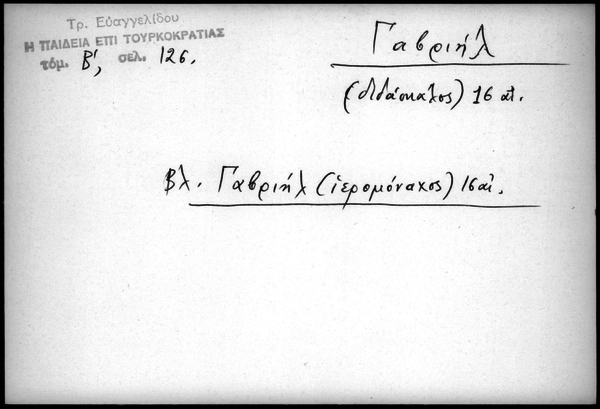 Τρ. Εὐαγγελίδου
Η ΠΑΙΔΕΙΑ ΕΠΙ ΤΟΥΡΚΟΚΡΑΤΙΑΣ
τόμ. Β', σελ. 126.
Γαβριήλ
(διδάσκαλος) 16 αἰ.
Βλ. Γαβριήλ (ἱερομόναχος) 16 αἰ.